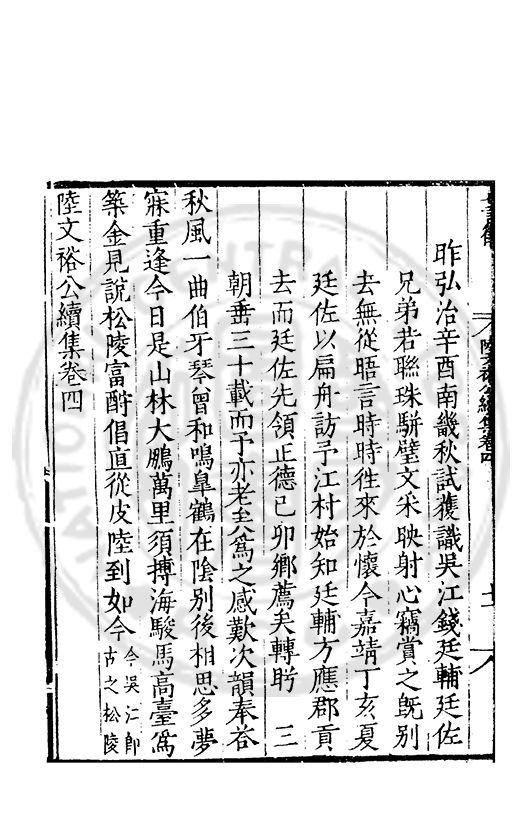 陸文裕公續集卷四
昨弘治辛酉南畿秋試獲識吳江錢廷輔廷佐
兄弟若聯珠駢璧文采映射心竊賞之旣别
去無從晤言時時徃來於懷今嘉靖丁亥夏
廷佐以扁舟訪予江村始知廷輔方應郡貢
去而廷佐先領正德己卯鄉薦矣轉盻三
朝垂三十載而予亦老矣爲之感歎次韻奉荅
秋風一曲伯牙琴曾和鳴臯鶴在陰别後相思多夢
寐重逢今日是山林大鵬萬里須摶海駿馬高臺爲
築金見說松陵富酧倡直從皮陸到如今今吳江卽
古之松陵
陸文裕公續集卷四